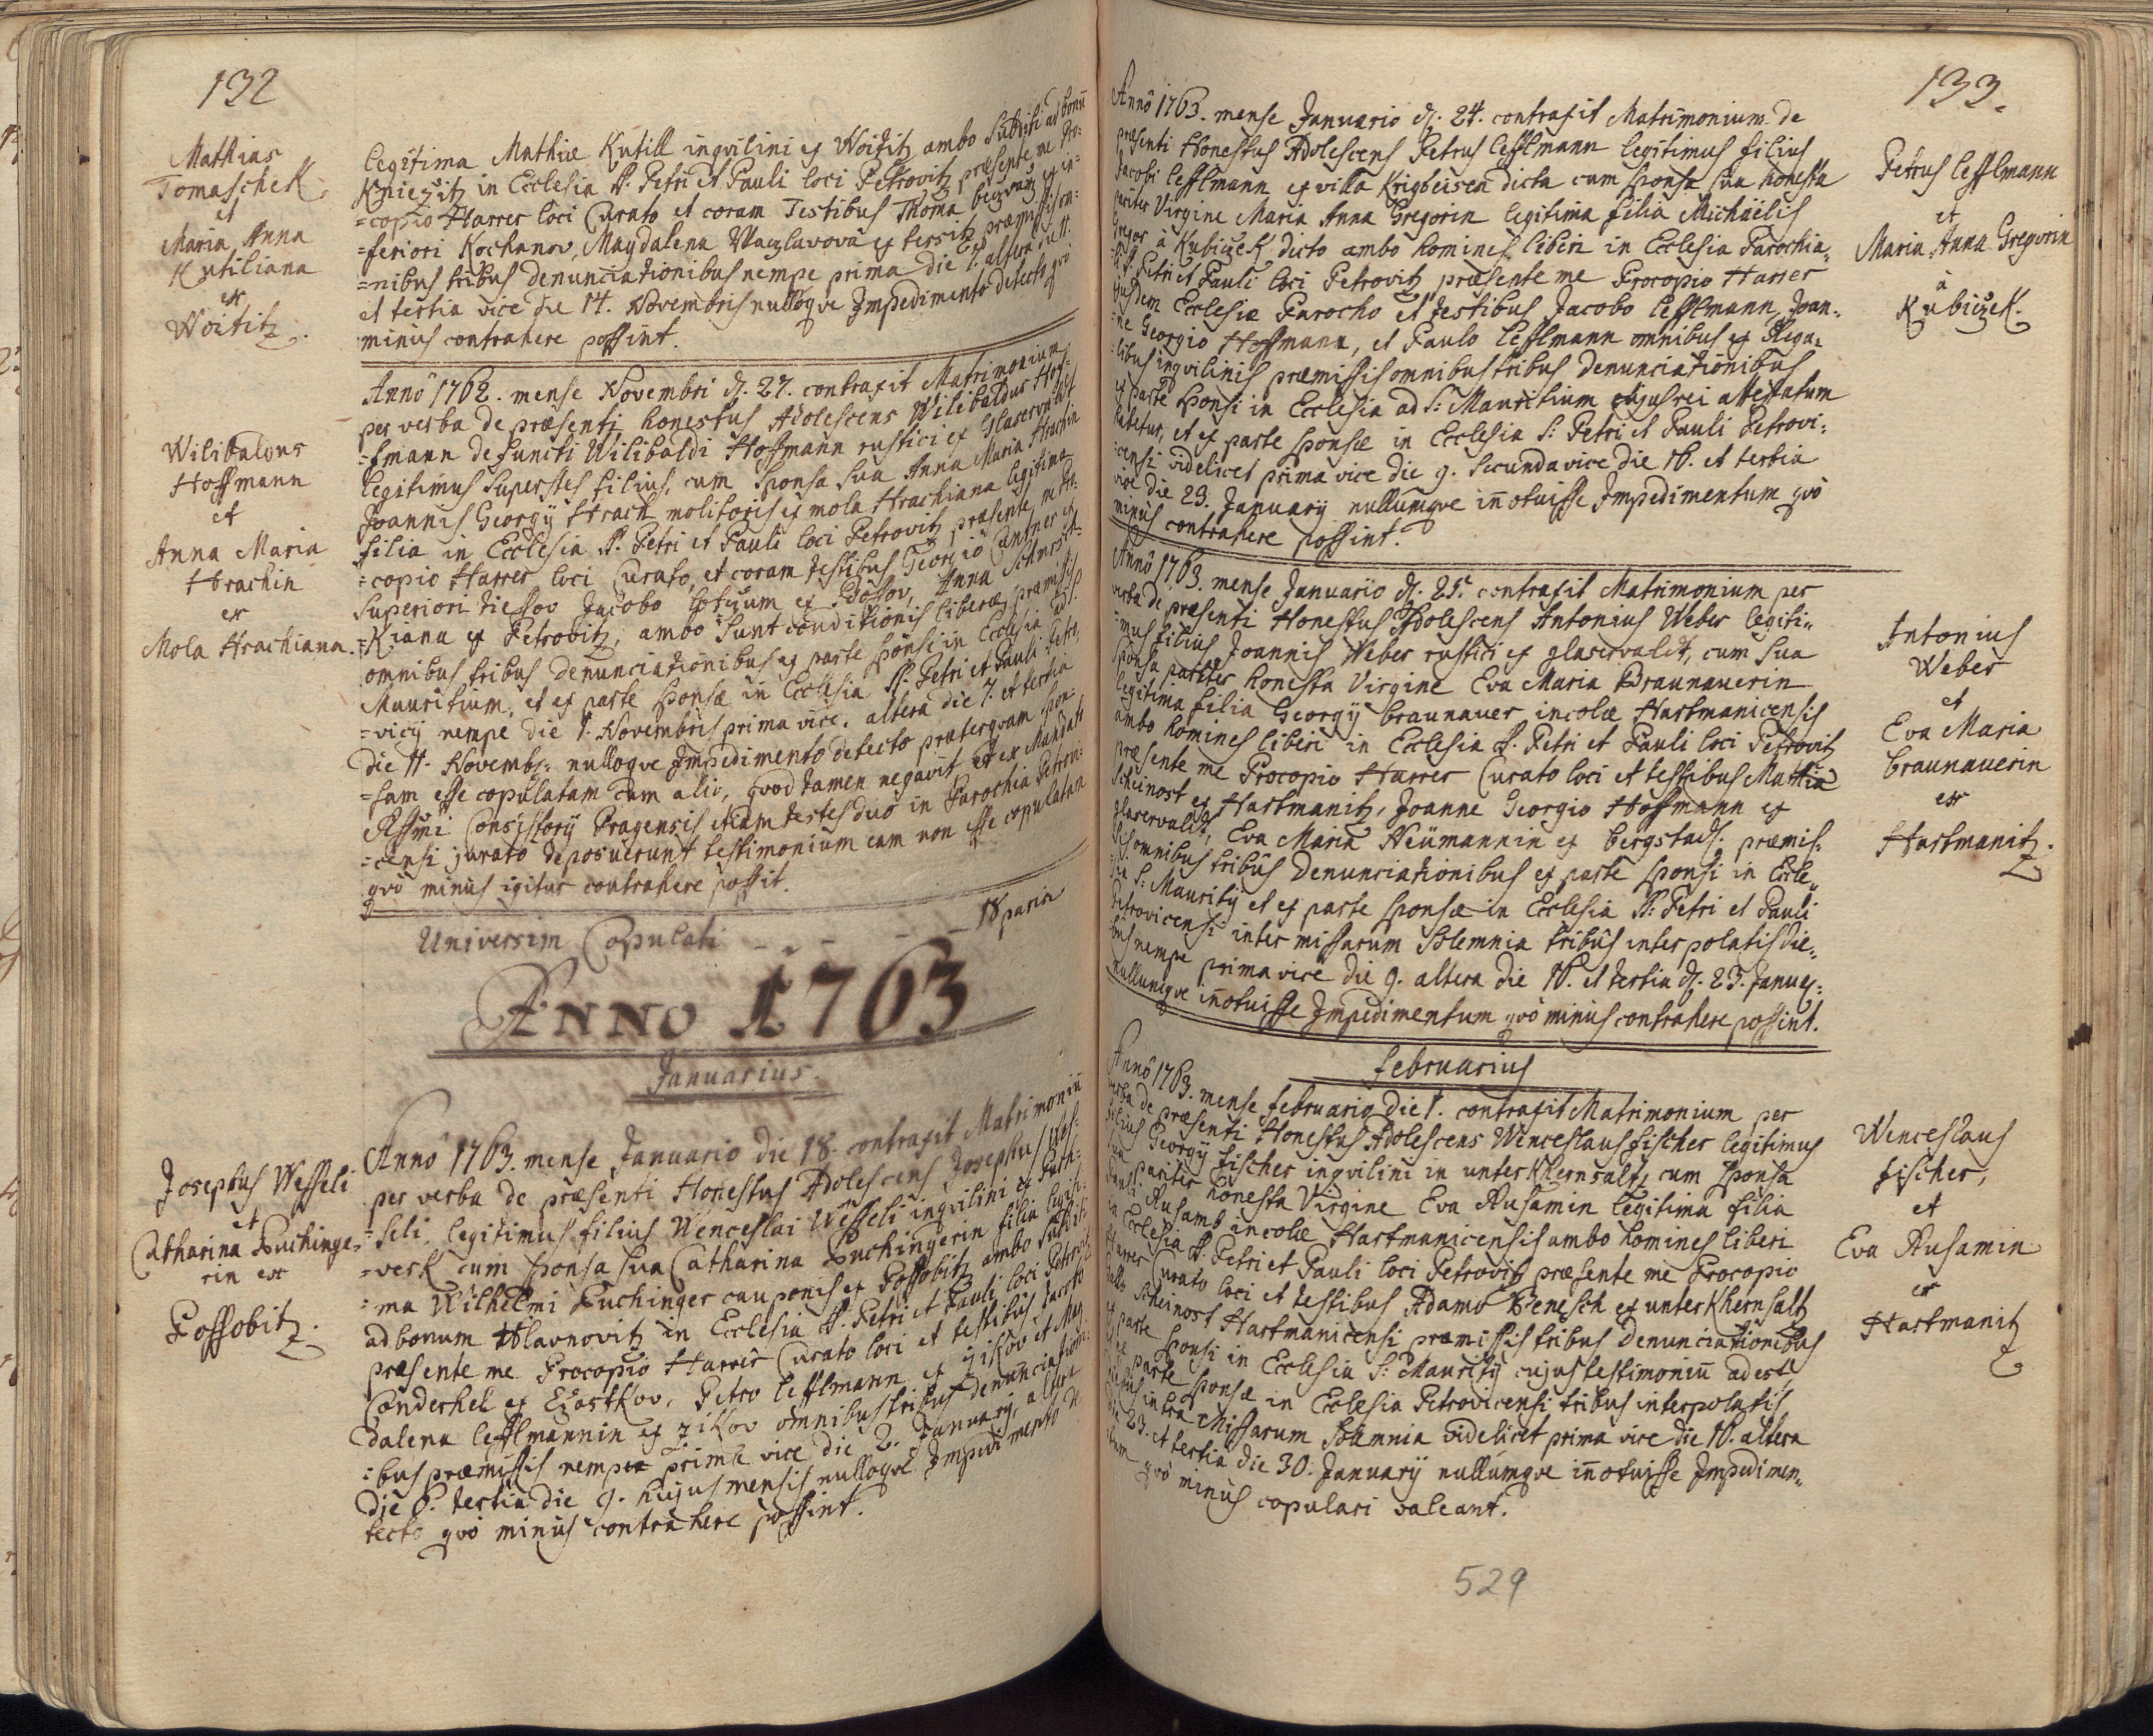 132
Mathias
Tomaschek
et
Maria Anna
Kutiliana
ex
Woititz.
legitima Mathiæ Kutill inqvilini ex Woititz ambo Subditi ad bonū
Kniezitz in Ecclesia S. Petri et Pauli loci Petrovitz præsente me Pro-
=copio Harrer loci Curato et coram Testibus Thoma ex in-
=feriori Kochanov, Magdalena Waczlavova ex tersitz præmissis om-
=nibus tribus denunciationibus nempe prima die 7. altera
et tertia vice die 14. Novembris nulloqve Impedimento detecto qvo
minus contrahere possint.
Wilibaldus
Hoffmann
et
Anna Maria
Hrachin
ex
Mola Hrachiana.
Anno 1762. mense Novembri d. 27. contraxit Matrimonium
per verba de præsenti honestus Adolescens Wilibaldus Hof-
=fmann defuncti Wilibaldi Hoffmann rustici ex Glaserwaldt
legitimus Superstes filius, cum Sponsa Sua Anna Maria Hrachin
Joannis Georgij Hrach molitoris ex mola Hrachiana legitima
filia in Ecclesia S. Petri et Pauli loci Petrovitz præsente me Pro-
=copio Harrer loci Curato, et coram testibus Georgio Cantner ex
Superiori tiessov Jacobo ex Bossov, Anna
=Kiana ex Petrovitz, ambo Sunt conditionis liberæ præmissis
omnibus tribus denunciationibus ex parte Sponsi in Ecclesia ad S.
Mauritium, et ex parte Sponsæ in Ecclesia S. Petri et Pauli Petro-
=vicij nempe die 1. Novembris prima vice, altera die 7. et tertia
die 11. Novembr. nulloqve Impedimento detecto præterqvam spon-
=sam esse copulatam cum alio, qvod tamen negavit et ex Mandato
Rssmi Consistorij Pragensis etiam testes duo in Parochia Petrovi-
=censi jurato deposuerunt testimonium eam non esse copulatam
qvo minus igitur contrahere possit.
Universim Copulati - - - - - 18 paria
ANNO 1763
Januarius.
Josephus Wesseli
et
Catharina Puchinge-
rin ex
Possobitz.
Anno 1763. mense Januario die 18. contraxit Matrimoniū
per verba de præsenti Honestus Adolescens Josephus Wes-
=seli, legitimus filius Wenceslai Wesseli inqvilini ex
=verk cum Sponsa Sua Catharina Puchingerin filia legiti-
=ma Wilhelmi Puchinger cauponis ex Possobitz ambo Subditi
ad bonum Hlavnovitz in Ecclesia S. Petri et Pauli loci Petrovitz
præsente me Procopio Harrer Curato loci et testibus Jacobo
Conderhek ex Ezastkov, Petro Lefflmann ex zikov et Mag-
dalena Lefflmannin ex zikov omnibus tribus denunciation-
=bus præmissis nempe prima vice die 2. Januarij, altera
die 6. tertia die 9. hujus mensis nulloqve Impedimento de-
tecto qvo minus contrahere possint.
133.
Anno 1763. mense Januario d. 24. contraxit Matrimonium de
præsenti Honestus Adolescens Petrus Lefflmann legitimus filius
Jacobi Lefflmann ex villa Krigseisen dicta cum Sponsa Sua honesta
pariter Virgine Maria Anna Gregorin legitima filia Michaëlis
Gregor a Kubiczek dicto ambo homines liberi in Ecclesia Parochia-
S. Petri et Pauli loci Petrovitz præsente me Procopio Harrer
ejusdem Ecclesiæ Parocho et testibus Jacobo Lefflmann, Joan-
=ne Georgio Hoffmann, et Paulo Lefflmann omnibus ex Rega-
=libus inqvilinis præmissis omnibus tribus denunciationibus
ex parte Sponsi in Ecclesia ad S: Mauritium cujus rei attestatum
habetur, et ex parte Sponsæ in Ecclesia S: Petri et Pauli Petrovi-
=censi videlicet prima vice die 9. Secunda vice die 16. et tertia
vice die 23. Januarij nullumqve iñotuisse Impedimentum qvo
minus contrahere possint.
Petrus Lefflmann
et
Maria Anna Gregorin
a
Kubiczek.
Anno 1763. mense Januario d. 25. contraxit Matrimonium per
verba de præsenti Honestus Adolescens Antonius Weber legiti-
=mus filius Joannis Weber rustici ex glaservaldt, cum Sua
Sponsa pariter honesta Virgine Eva Maria Braunauerin
legitima filia Georgij Braunauer incolæ Hartmanicensis
ambo homines liberi in Ecclesia S. Petri et Pauli loci Petrovitz
præsente me Procopio Harrer Curato loci et testibus Mathia
Scheinost ex Hartmanitz, Joanne Georgio Hoffmann ex
glaservaldt, Eva Maria Neümannin ex bergstadt. præmis-
sis omnibus tribus denunciationibus ex parte Sponsi in Eccle-
=sia S: Mauritij et ex parte Sponsæ in Ecclesia S: Petri et Pauli
Petrovicensi inter missarum Solemnia tribus interpolatis die-
bus nempe prima vice die 9. altera die 16. et tertia d. 23. Januar:
nullumqve iñotuisse Impedimentum qvo minus contrahere possint.
Antonius
Weber
et
Eva Maria
Braunauerin
ex
Hartmanitz.
Februarius
Anno 1763. mense februario die 1. contraxit Matrimonium per
verba de præsenti Honestus Adolescens Wenceslaus fischer legitimus
filius Georgij fischer inqvilini in unterKhernsaltz, cum Sponsa
Sua pariter honesta Virgine Eva Rusamin legitima filia
Rusamb incolæ Hartmanicensis ambo homines liberi
in Ecclesia S. Petri et Pauli loci Petrovitz præsente me Procopio
Harrer Curato loci et testibus Adamo Benesch ex unterKhernsaltz
Scheinost Hartmanicensi præmissis tribus denunciationibus
ex parte Sponsi in Ecclesia S: Mauritij cujus testimoniū adest
ex parte Sponsæ in Ecclesia Petrovicensi tribus interpolatis
diebus intra Missarum Solemnia videlicet prima vice die 16. altera
die 23. et tertia die 30. Januarij nullumqve iñotuisse Impedimen-
tum qvo minus copulari valeant.
Wenceslaus
fischer,
et
Eva Rusamin
ex
Hartmanitz
529